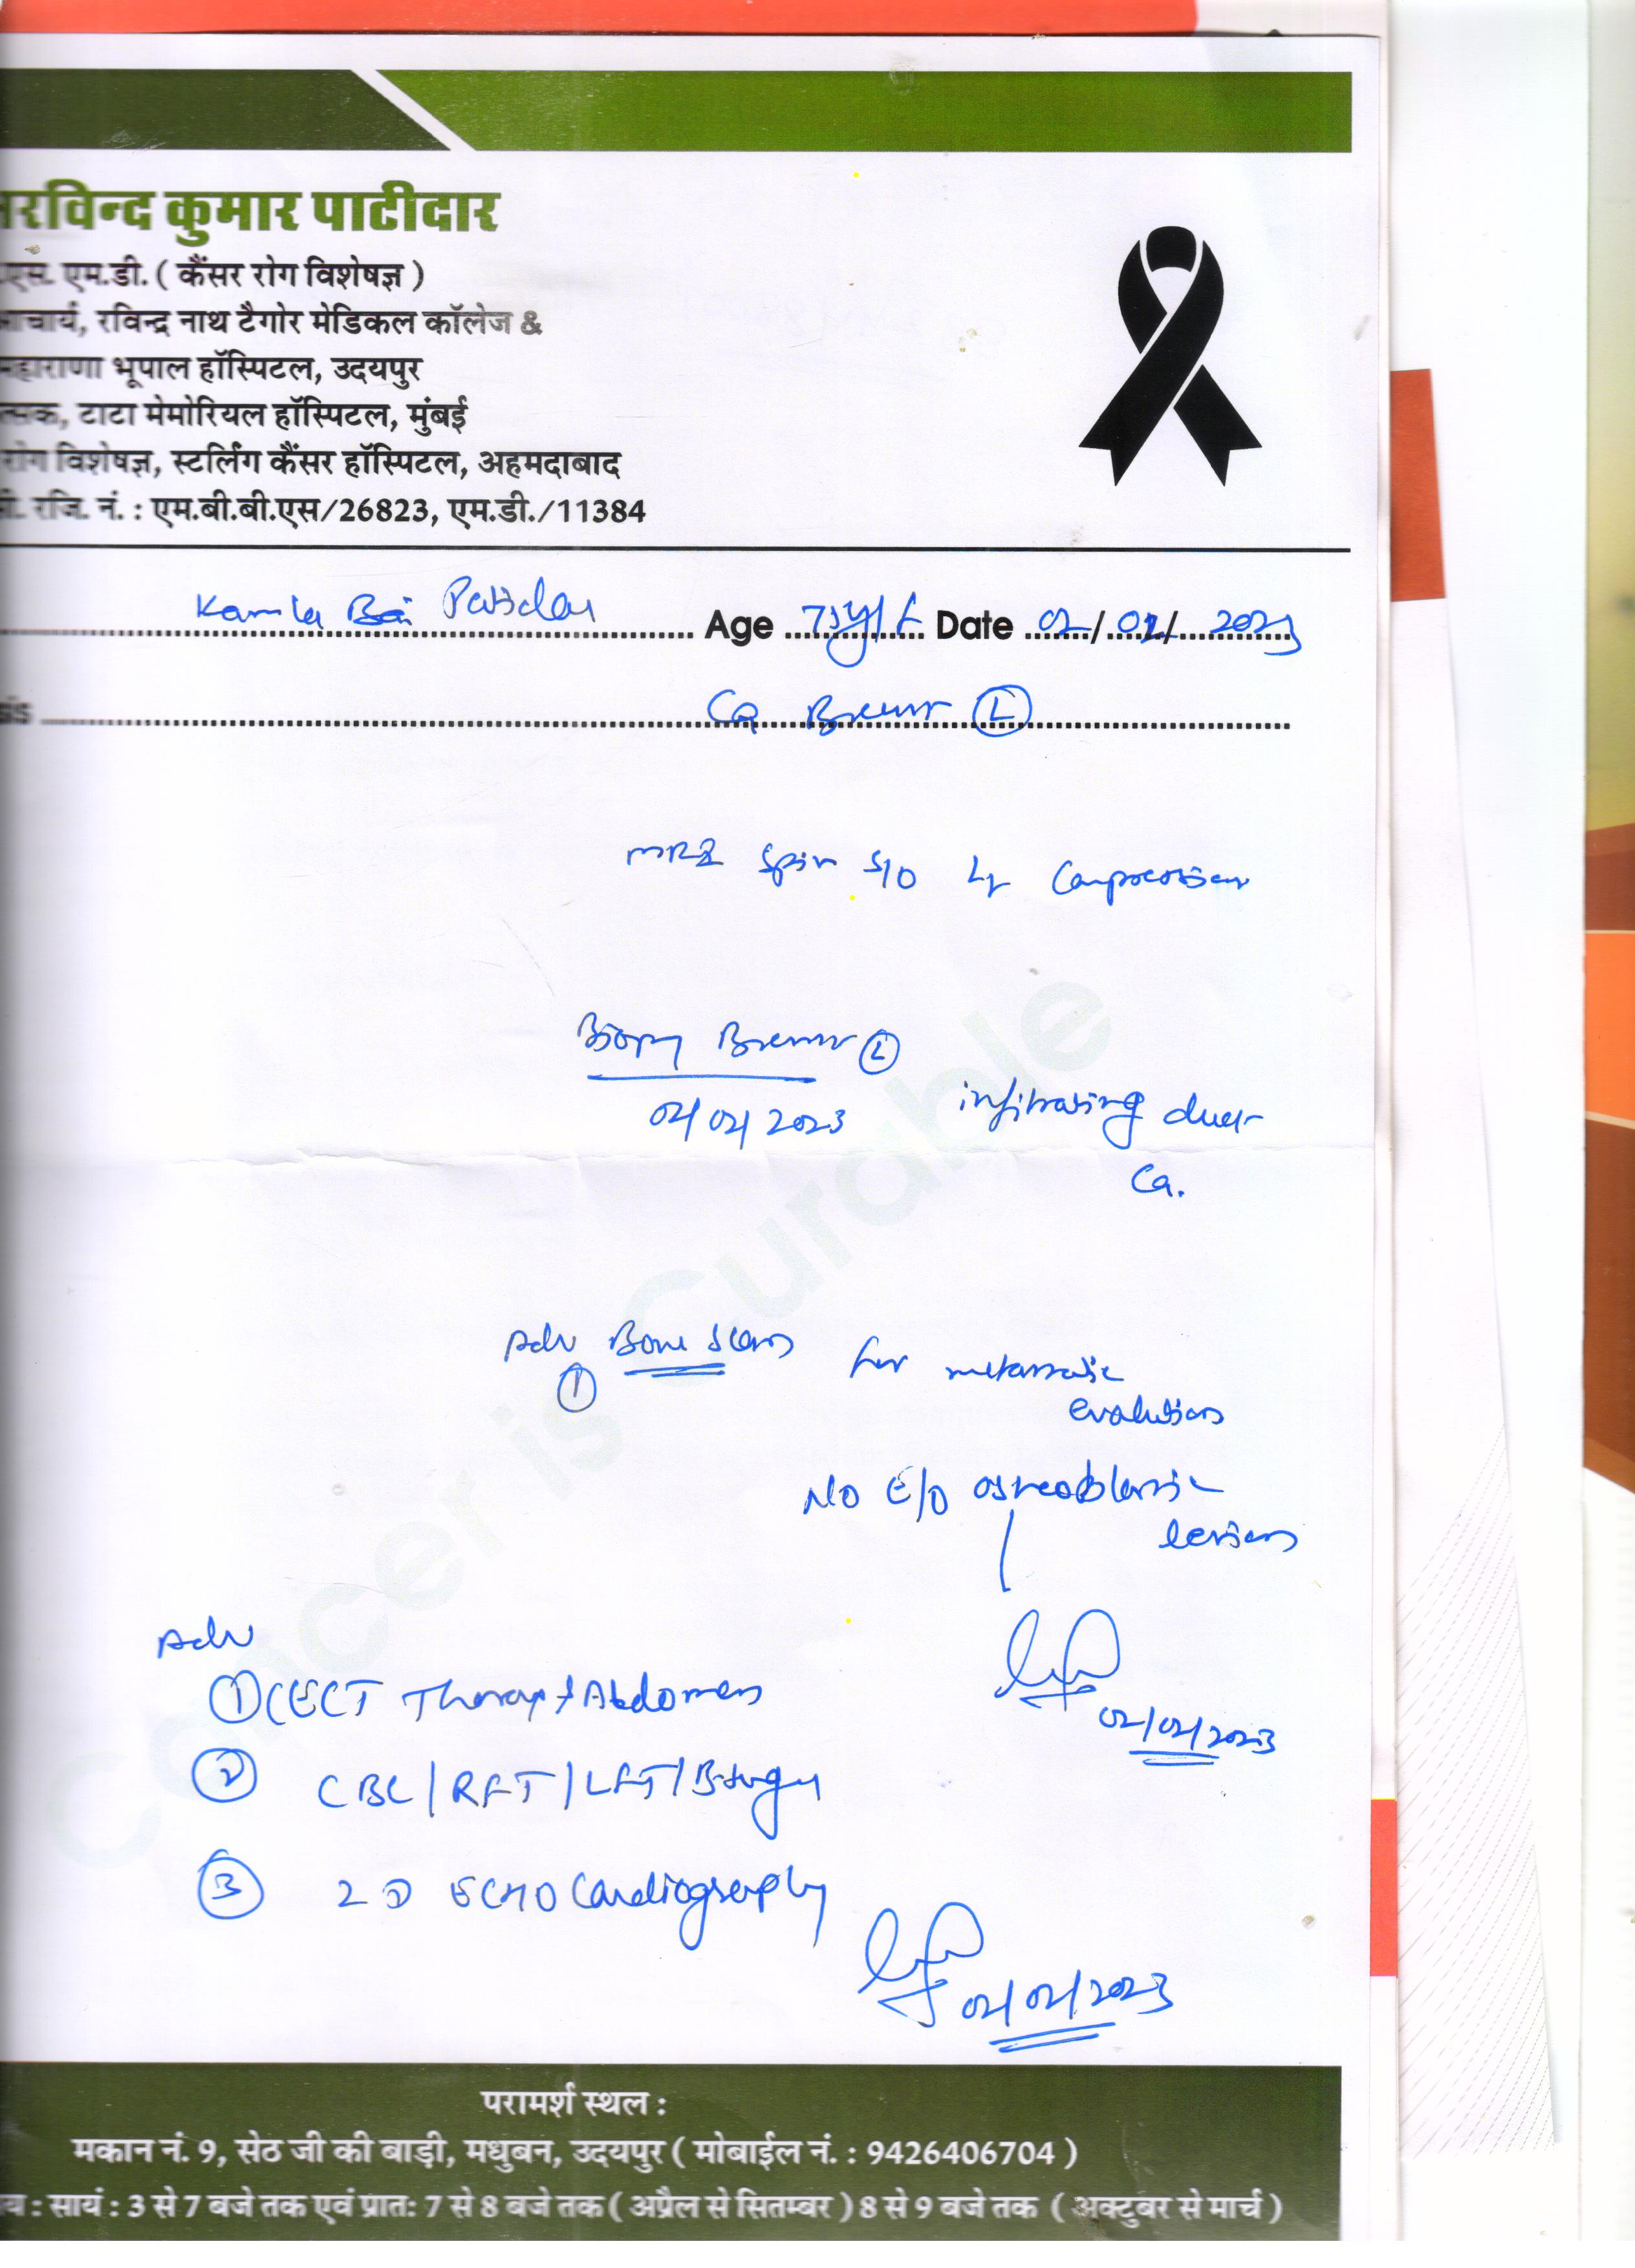 रविन्द कुमार पाटीदार
एस. एम.डी. ( कैंसर रोग विशेषज्ञ )
आचार्य, रविन्द्र नाथ टैगोर मेडिकल कॉलेज &
महाराणा भूपाल हॉस्पिटल, उदयपुर
त्सक, टाटा मेमोरियल हॉस्पिटल, मुंबई
रोग विशेषज्ञ, स्टर्लिंग कैंसर हॉस्पिटल, अहमदाबाद
रजि. नं. : एम.बी.बी.एस/26823, एम.डी./11384
Kamla Bai Patidar Age Date 02/02/2023
sis Ca Breast L
MRI Spine S/O Compression
Biopsy Breast L
02/02/2023 infiltrating duct
Ca.
Adv Bone Scan for metastatic
1 evalution
No E/O osteoblastic
lesion
Adv
1 CECT Thorax + Abdomen
02/02/2023
2 CBC/RFT/LFT/B.sugar
3 2D ECHO Cardiography
02/02/2023
Cancer is Curable
परामर्श स्थल :
मकान नं. 9, सेठ जी की बाड़ी, मधुबन, उदयपुर ( मोबाईल नं. : 9426406704 )
य : सायं : 3 से 7 बजे तक एवं प्रात: 7 से 8 बजे तक ( अप्रैल से सितम्बर ) 8 से 9 बजे तक ( अक्टुबर से मार्च )